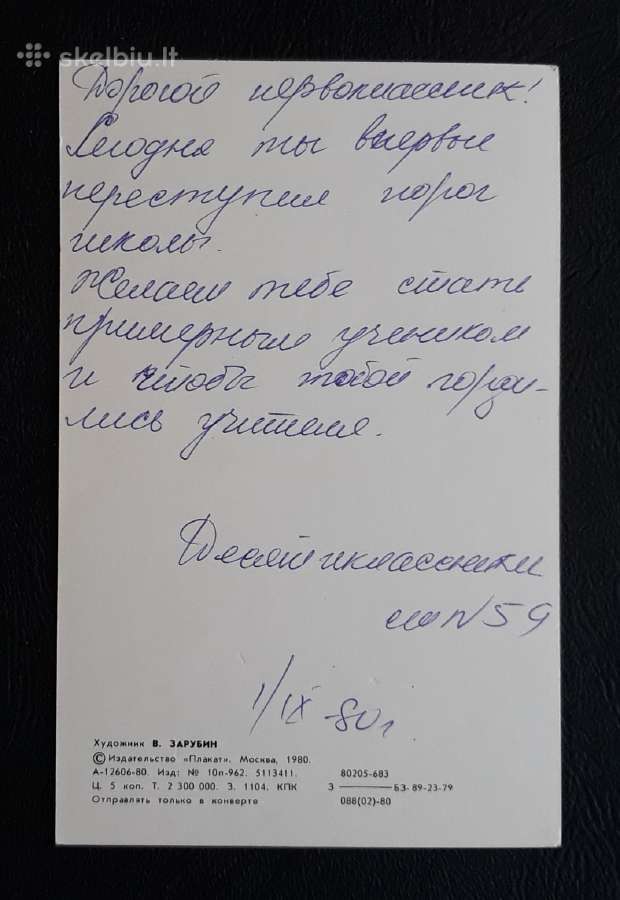 skelbiu.lt
Дорогой первоклассник!
Сегодня ты впервые
переступил порог
школы.
Желаем тебе стать
примерным учеником
и чтобы тобой горди-
лись учителя.
Десятиклассники
сш N 59
1/IX -80 г.
Художник В. ЗАРУБИН
© Издательство «Плакат». Москва, 1980.
А-12606-80. Изд: № 10п-962. 5113411.
Ц. 5 коп. Т. 2 300 000. З. 1104. КПК
Отправлять только в конверте
80205-683
З ——— БЗ-89-23-79
088(02)-80